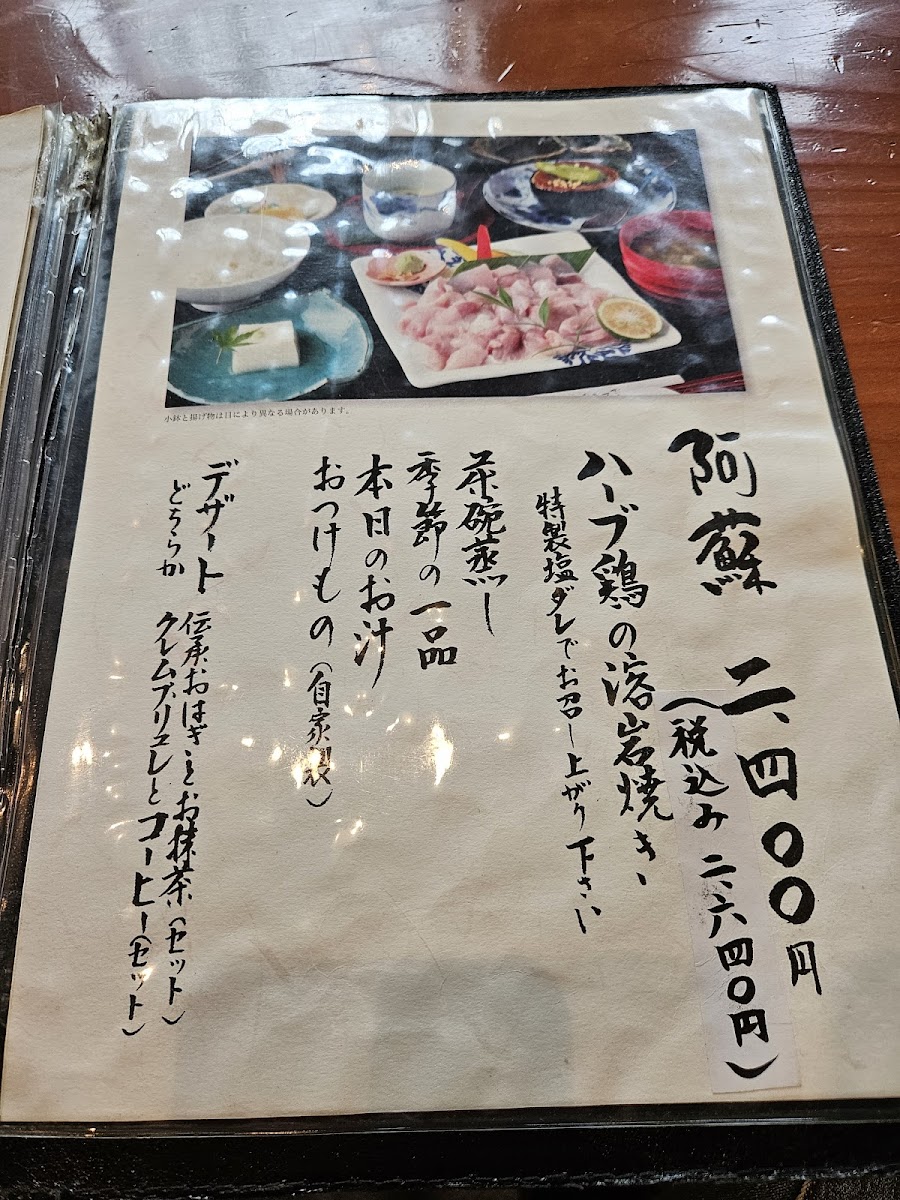 小鉢と揚げ物は日により異なる場合があります。
阿蘇 二、四〇〇円
(税込み 二、六四〇円)
ハーブ鶏の溶岩焼き、
特製塩ダレでお召し上がり下さい
茶碗蒸し
季節の一品
本日のお汁
おつけもの(自家製)
デザート
どちらか
伝承おはぎとお抹茶(セット)
クレムブリュレとコーヒー(セット)